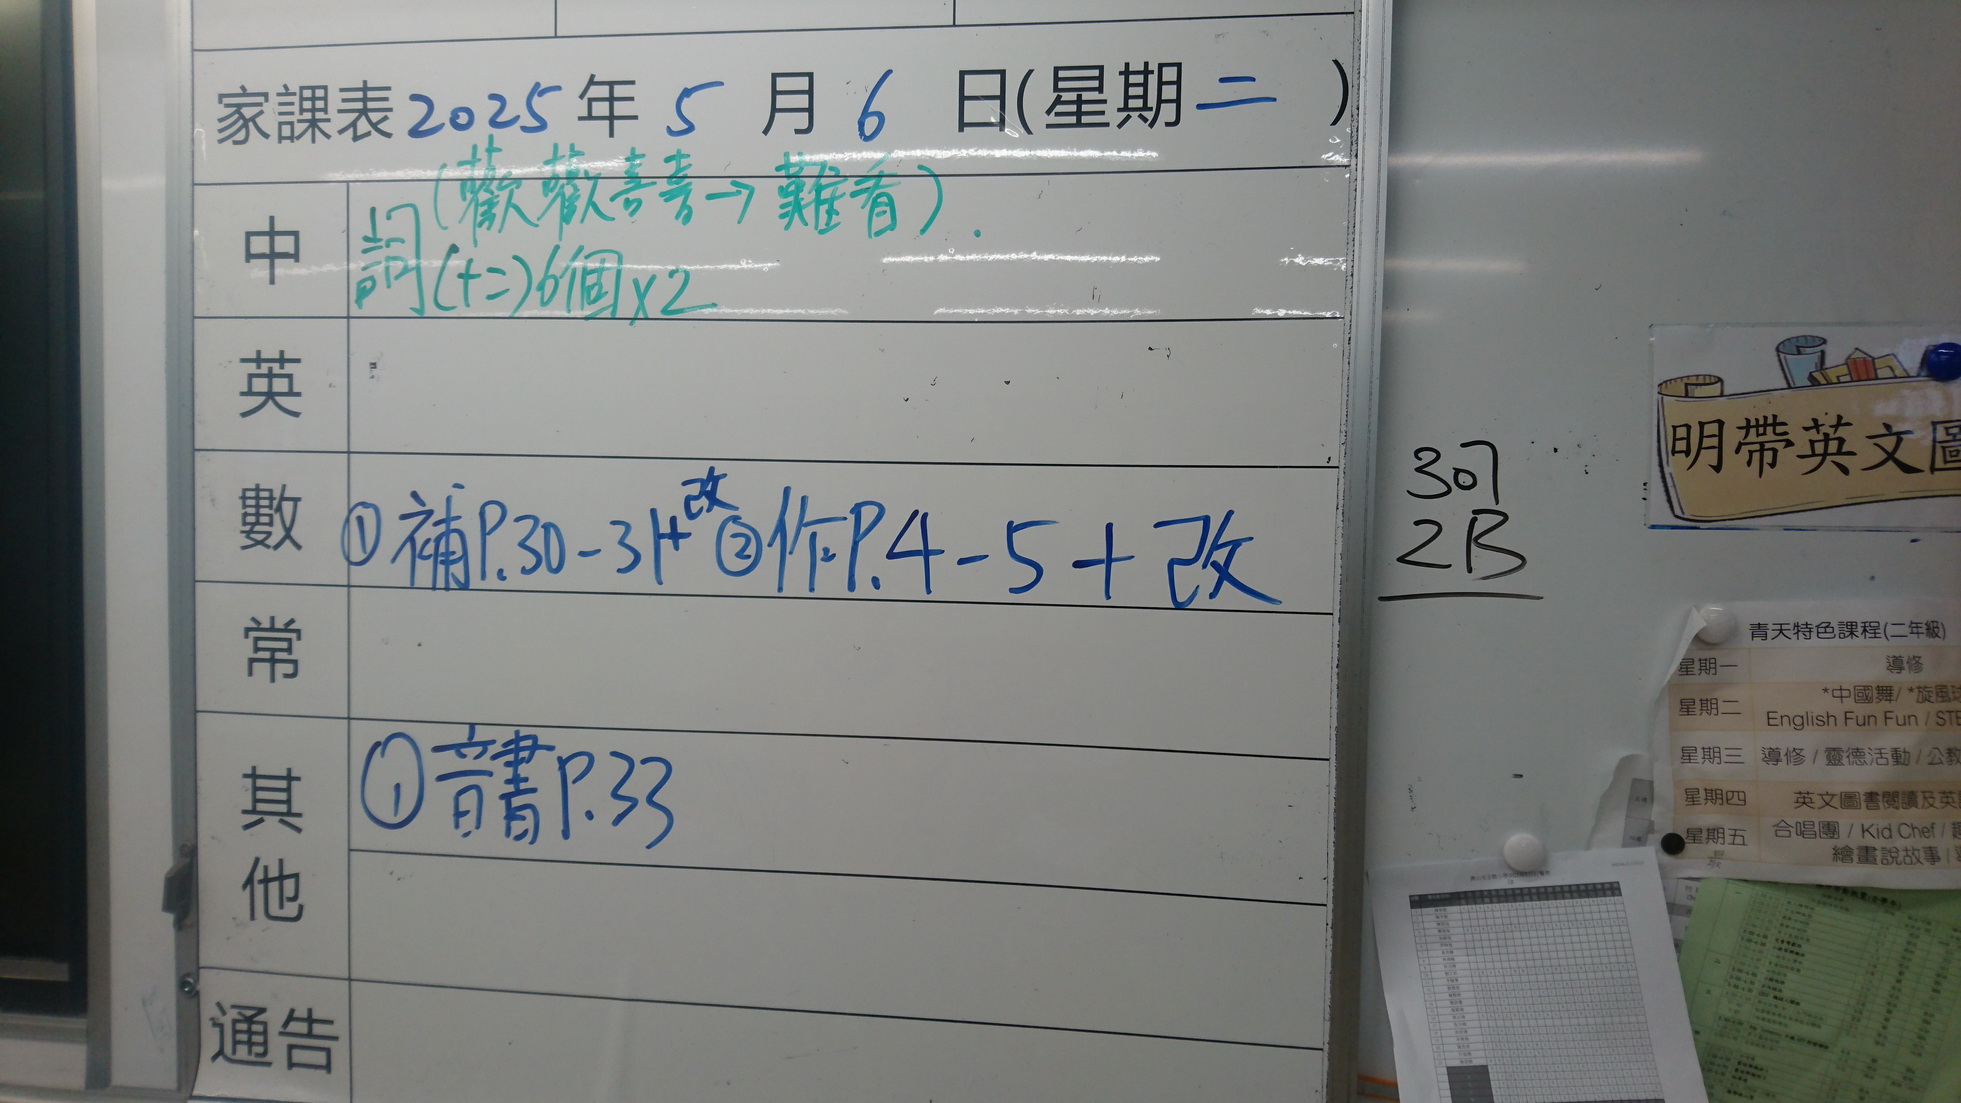 家課表2025年5月6日(星期二)
中
(歡歡喜喜→難看).
詞(十二)6個x2
英
數
①補P.30-31+改 ②作P.4-5+改
常
其他
①音書P.33
通告
307
2B
明帶英文圖
青天特色課程(二年級)
星期一 導修
星期二 *中國舞/ *旋風球
English Fun Fun / STE
星期三 導修 / 靈德活動 / 公教
星期四 英文圖書閱讀及英
星期五 合唱團 / Kid Chef /
繪畫說故事